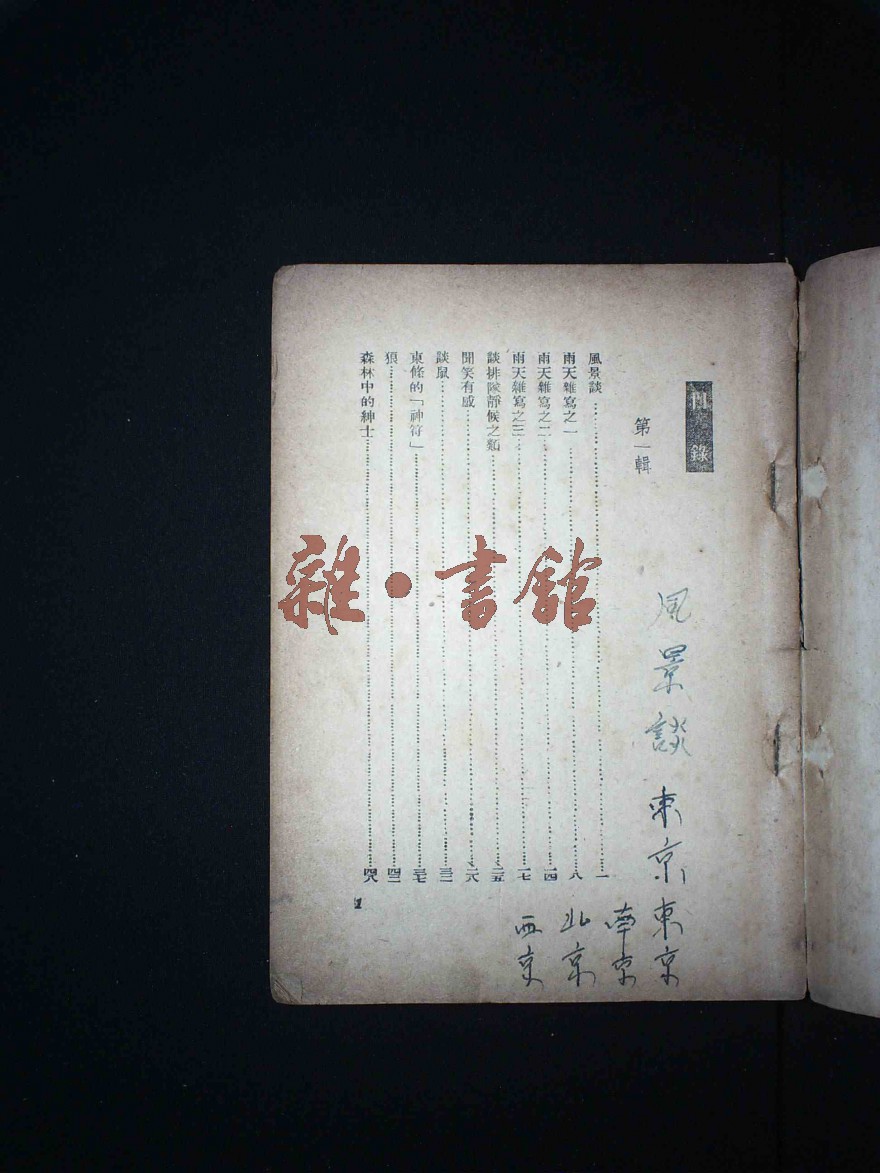 目錄
第一輯
風景談 一
雨天雜寫之一 八
雨天雜寫之二 一四
雨天雜寫之三 一七
談排隊靜候之類 二五
聞笑有感 二八
談鼠 三二
東條的「神符」 三七
狼 四二
森林中的紳士 四八
1
風景談 東京東京
南京
北京
西京
雜·書館